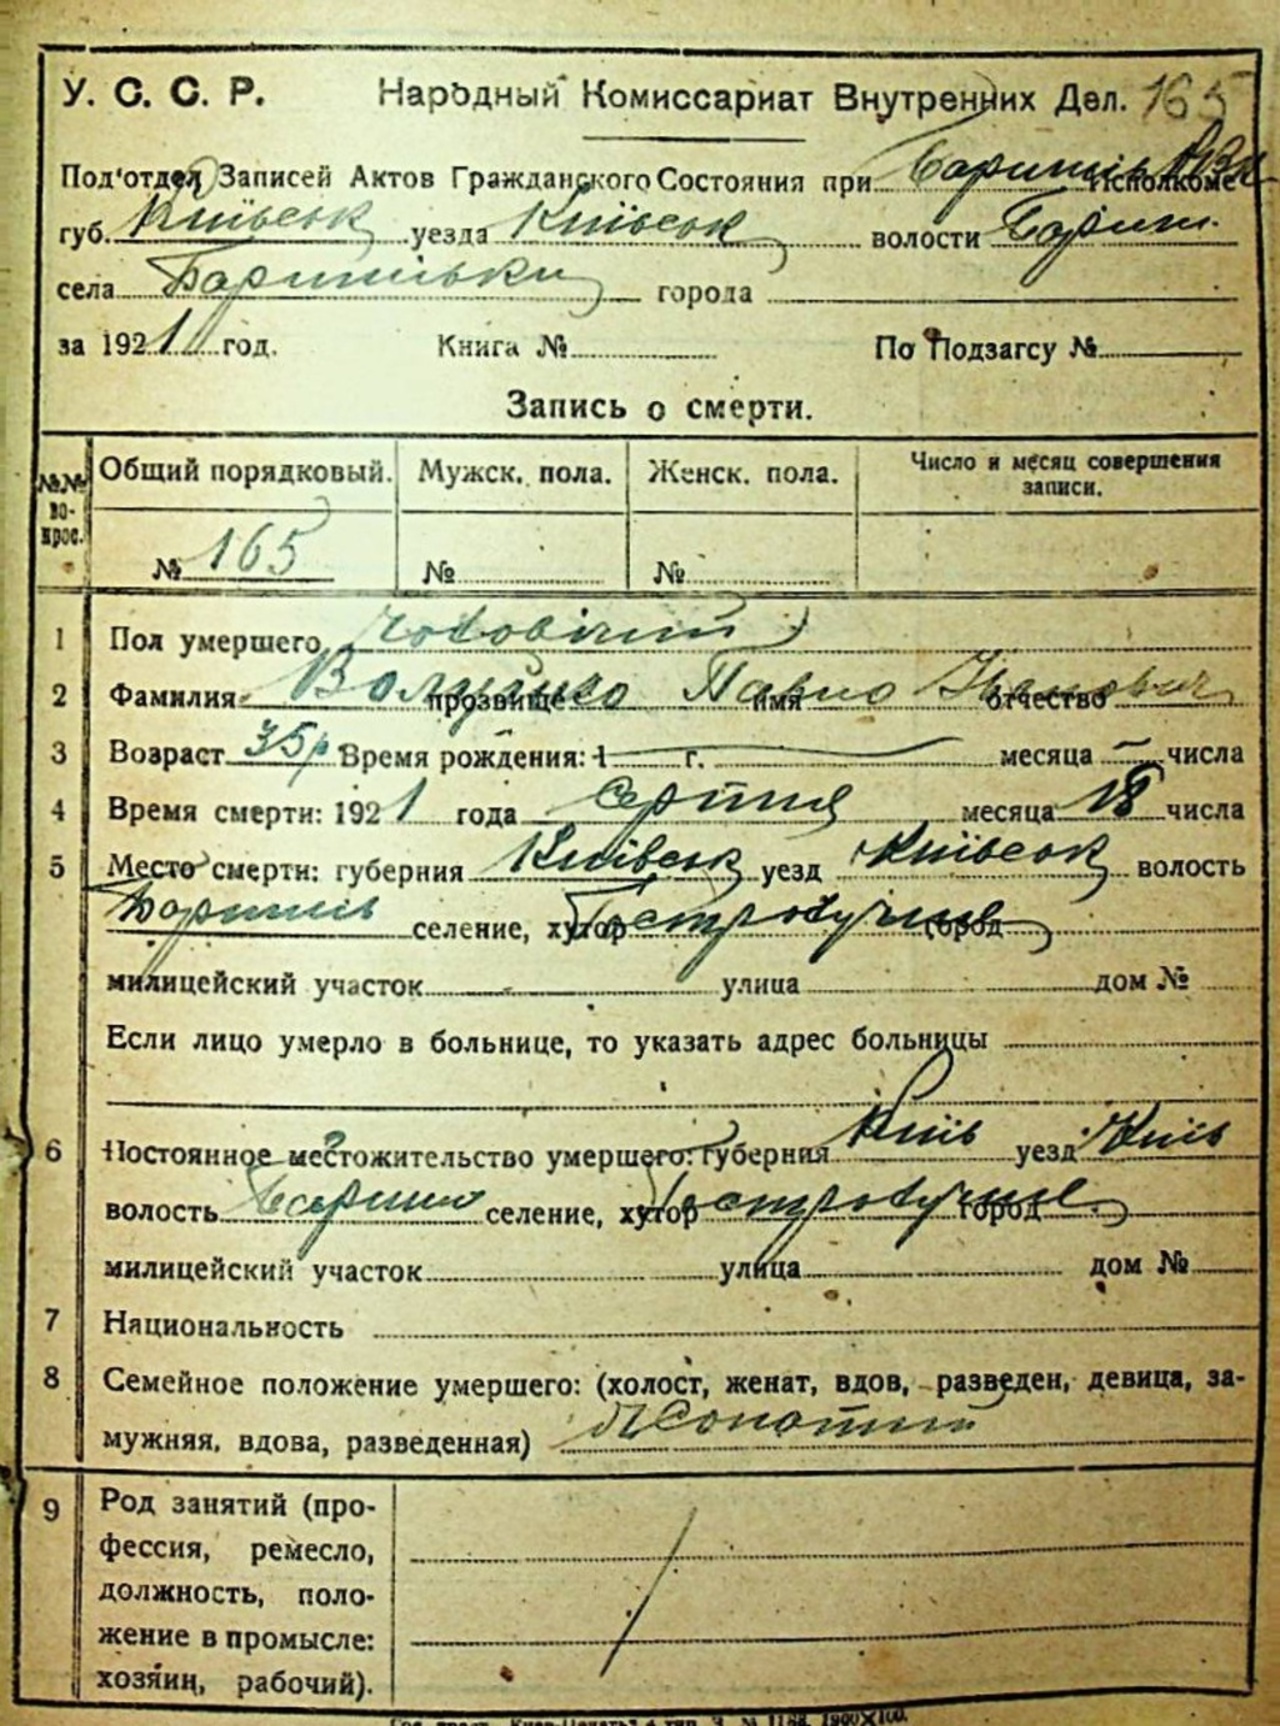 У. С. С. Р. Народный Комиссариат Внутренних Дел. 165
Под'отдел Записей Актов Гражданского Состояния при Исполкоме
губ. Київськ уезда Київськ волости Баришп.
села Баришівки города
за 1921 год. Книга № По Подзагсу №
Запись о смерти.
№№ вопрос. Общий порядковый. Мужск. пола. Женск. пола. Число и месяц совершения записи.
№ 165 № №
1 Пол умершего чоловічий
2 Фамилия прозвище имя отчество Павло Іванович
3 Возраст 35 р. Время рождения: 1 г. месяца числа
4 Время смерти: 1921 года серпня месяца 18 числа
5 Место смерти: губерния Київськ уезд Київськ волость
селение, хутор город
милицейский участок улица дом №
Если лицо умерло в больнице, то указать адрес больницы
6 Постоянное местожительство умершего: губерния Київ уезд Київ
волость селение, хутор город
милицейский участок улица дом №
7 Национальность
8 Семейное положение умершего: (холост, женат, вдов, разведен, девица, за-
мужняя, вдова, разведенная) Жонатий
9 Род занятий (про-
фессия, ремесло,
должность, поло-
жение в промысле:
хозяин, рабочий).